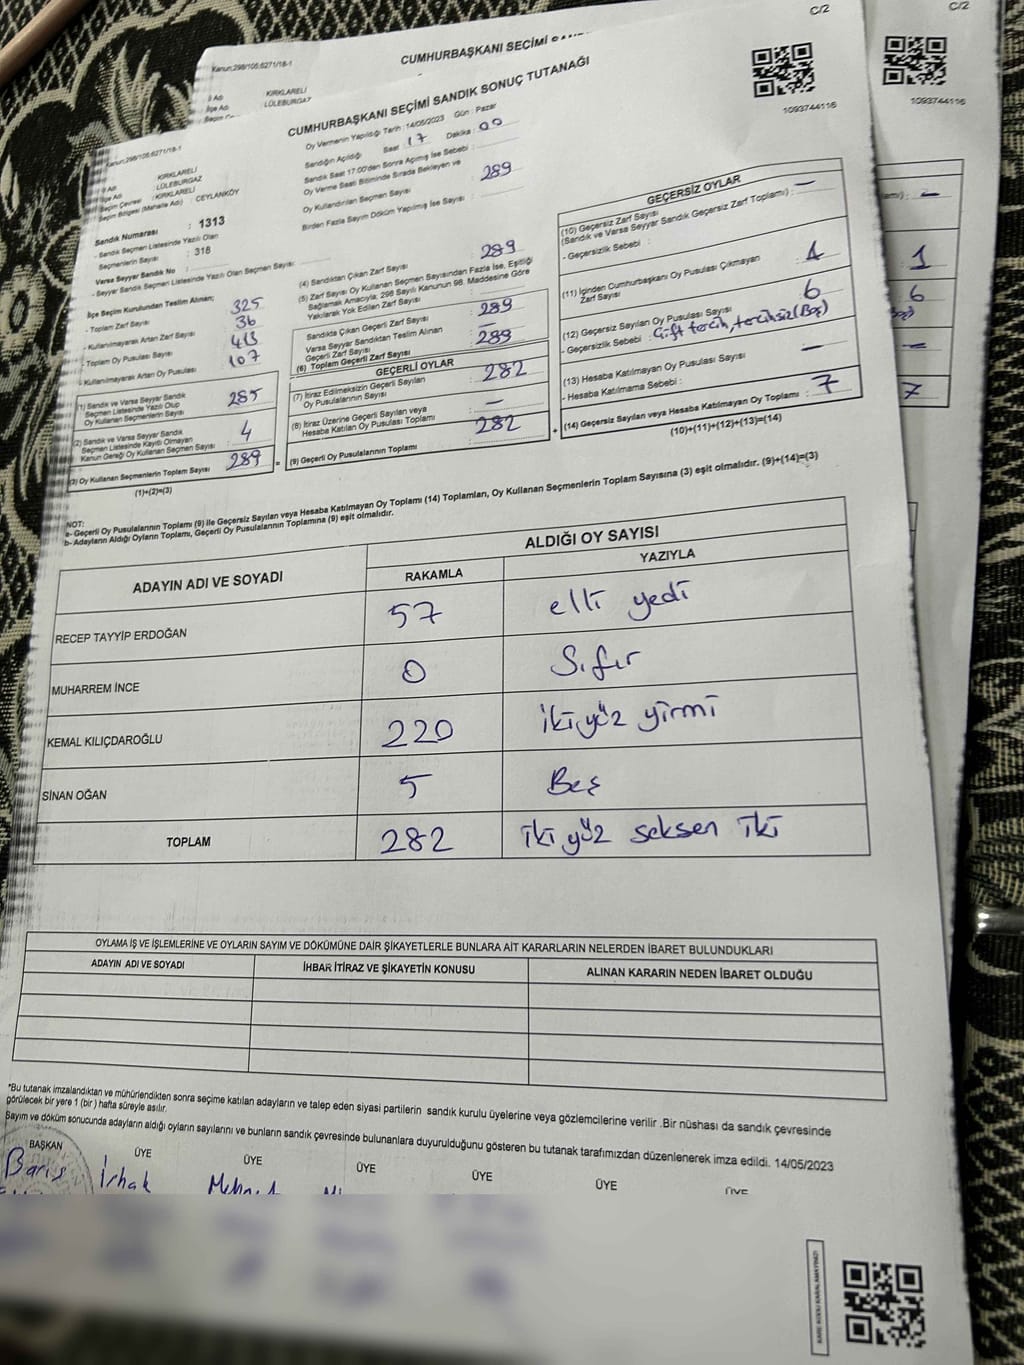 C/2
C/2
Kanun:298/105;6271/18-1
CUMHURBAŞKANI SEÇİMİ
İl Adı KIRKLARELİ
İlçe Adı LÜLEBURGAZ
1093744116
1093744116
CUMHURBAŞKANI SEÇİMİ SANDIK SONUÇ TUTANAĞI
Kanun:298/105;6271/18-1
Oy Vermenin Yapıldığı Tarih : 14/05/2023 Gün : Pazar
Sandığın Açıldığı Saat : 17 Dakika : 00
Sandık Saat 17:00'den Sonra Açılmış İse Sebebi :
Oy Verme Saati Bitiminde Sırada Bekleyen ve
Oy Kullandırılan Seçmen Sayısı
289
Birden Fazla Sayım Döküm Yapılmış İse Sayısı :
İl Adı : KIRKLARELİ
İlçe Adı : LÜLEBURGAZ
Seçim Çevresi : KIRKLARELİ
Seçim Bölgesi (Mahalle Adı) : CEYLANKÖY
Sandık Numarası : 1313
- Sandık Seçmen Listesinde Yazılı Olan
Seçmenlerin Sayısı : 318
Varsa Seyyar Sandık No :
- Seyyar Sandık Seçmen Listesinde Yazılı Olan Seçmen Sayısı:
İlçe Seçim Kurulundan Teslim Alınan;
- Toplam Zarf Sayısı 325
- Kullanılmayarak Artan Zarf Sayısı 36
- Toplam Oy Pusulası Sayısı 413
- Kullanılmayarak Artan Oy Pusulası 107
(1) Sandık ve Varsa Seyyar Sandık
Seçmen Listesinde Yazılı Olup
Oy Kullanan Seçmenlerin Sayısı 285
(2) Sandık ve Varsa Seyyar Sandık
Seçmen Listesinde Kayıtlı Olmayan
Kanun Gereği Oy Kullanan Seçmen Sayısı 4
(3) Oy Kullanan Seçmenlerin Toplam Sayısı 289
(1)+(2)=(3)
=
(4) Sandıktan Çıkan Zarf Sayısı 289
(5) Zarf Sayısı Oy Kullanan Seçmen Sayısından Fazla İse, Eşitliği
Sağlamak Amacıyla; 298 Sayılı Kanunun 98. Maddesine Göre
Yakılarak Yok Edilen Zarf Sayısı :
Sandıkta Çıkan Geçerli Zarf Sayısı : 289
Varsa Seyyar Sandıktan Teslim Alınan
Geçerli Zarf Sayısı : —
(6) Toplam Geçerli Zarf Sayısı 289
GEÇERLİ OYLAR
(7) İtiraz Edilmeksizin Geçerli Sayılan
Oy Pusulalarının Sayısı 282
(8) İtiraz Üzerine Geçerli Sayılan veya
Hesaba Katılan Oy Pusulası Toplamı —
(9) Geçerli Oy Pusulalarının Toplamı 282
+
GEÇERSİZ OYLAR
(10) Geçersiz Zarf Sayısı
(Sandık ve Varsa Seyyar Sandık Geçersiz Zarf Toplamı) : —
- Geçersizlik Sebebi :
(11) İçinden Cumhurbaşkanı Oy Pusulası Çıkmayan
Zarf Sayısı 1
(12) Geçersiz Sayılan Oy Pusulası Sayısı 6
- Geçersizlik Sebebi : Çift tercih, tercihsiz (Boş)
(13) Hesaba Katılmayan Oy Pusulası Sayısı —
- Hesaba Katılmama Sebebi :
(14) Geçersiz Sayılan veya Hesaba Katılmayan Oy Toplamı : 7
(10)+(11)+(12)+(13)=(14)
—
1
6
—
7
NOT:
a- Geçerli Oy Pusulalarının Toplamı (9) ile Geçersiz Sayılan veya Hesaba Katılmayan Oy Toplamı (14) Toplamları, Oy Kullanan Seçmenlerin Toplam Sayısına (3) eşit olmalıdır. (9)+(14)=(3)
b- Adayların Aldığı Oyların Toplamı, Geçerli Oy Pusulalarının Toplamına (9) eşit olmalıdır.
ADAYIN ADI VE SOYADI ALDIĞI OY SAYISI
RAKAMLA YAZIYLA
RECEP TAYYİP ERDOĞAN 57 elli yedi
MUHARREM İNCE 0 Sıfır
KEMAL KILIÇDAROĞLU 220 ikiyüz yirmi
SİNAN OĞAN 5 Beş
TOPLAM 282 ikiyüz seksen iki
OYLAMA İŞ VE İŞLEMLERİNE VE OYLARIN SAYIM VE DÖKÜMÜNE DAİR ŞİKAYETLERLE BUNLARA AİT KARARLARIN NELERDEN İBARET BULUNDUKLARI
ADAYIN ADI VE SOYADI İHBAR İTİRAZ VE ŞİKAYETİN KONUSU ALINAN KARARIN NEDEN İBARET OLDUĞU
*Bu tutanak imzalandıktan ve mühürlendikten sonra seçime katılan adayların ve talep eden siyasi partilerin sandık kurulu üyelerine veya gözlemcilerine verilir .Bir nüshası da sandık çevresinde
görülecek bir yere 1 (bir ) hafta süreyle asılır.
Sayım ve döküm sonucunda adayların aldığı oyların sayılarını ve bunların sandık çevresinde bulunanlara duyurulduğunu gösteren bu tutanak tarafımızdan düzenlenerek imza edildi. 14/05/2023
BAŞKAN ÜYE ÜYE ÜYE ÜYE ÜYE ÜYE
Barış İrhak
KARE KODU KARALAMAYINIZ!